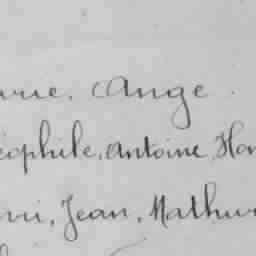 Ange.
éophile, Antoine, Hon
nri, Jean, Mathur